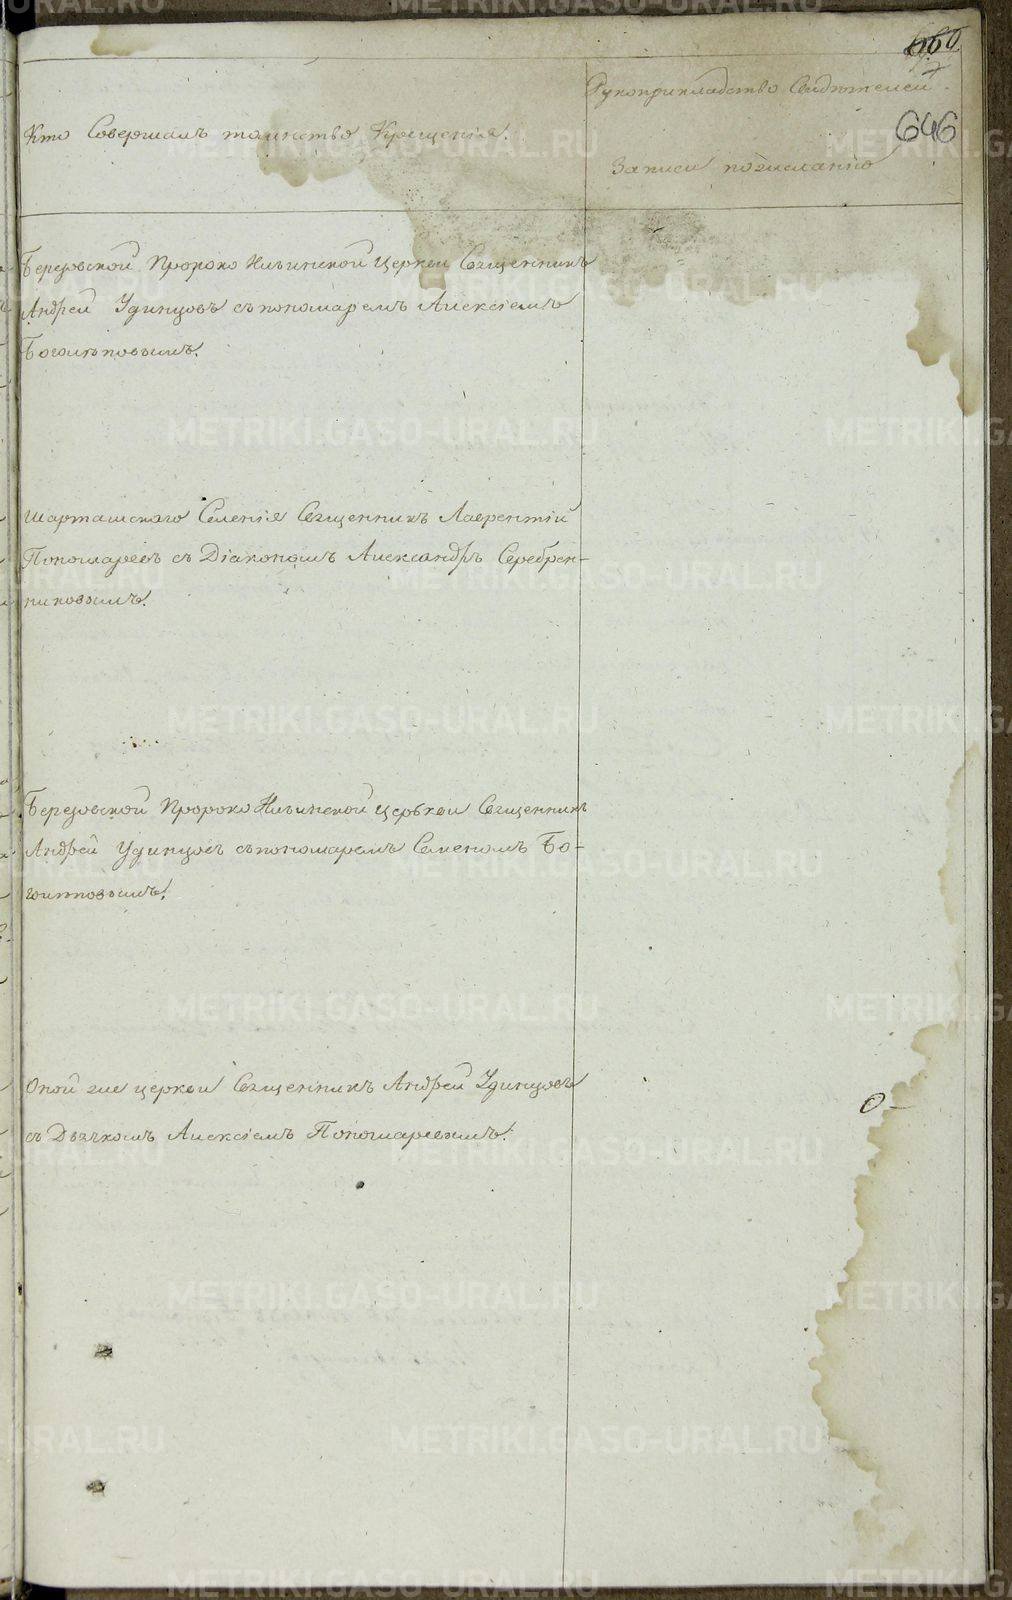 660
646
Кто Совершалъ таинство Крещенія.
Рукоприкладство Свидѣтелей
Записи по желанію
Березовской Пророко Ильинской Церкви Священникъ
Андрей Удинцовъ съ пономаремъ Алексіемъ
Боголѣповымъ.
Шарташскаго Селенія Священникъ Лаврентій
Пономаревъ съ Діакономъ Александръ Серебрен-
никовымъ.
Березовской Пророко Ильинской Церькви Священникъ
Андрей Удинцовъ съ пономаремъ Семеномъ Бо-
Оной же церкви Священникъ Андрей Удинцовъ
съ Дьячкомъ Алексіемъ Пономаревымъ.
METRIKI.GASO-URAL.RU